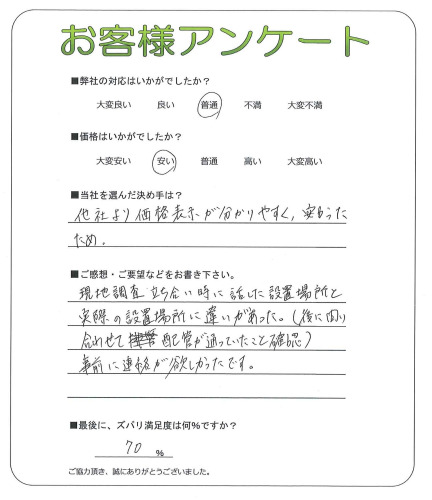 お客様アンケート
■弊社の対応はいかがでしたか？
大変良い 良い 普通 不満 大変不満
■価格はいかがでしたか？
大変安い 安い 普通 高い 大変高い
■当社を選んだ決め手は？
他社より価格表示が分かりやすく、安かった
ため。
■ご感想・ご要望などをお書き下さい。
現地調査立ち合い時に話した設置場所と
実際の設置場所に違いがあった。(後に問い
合わせて 配管が通っていたこと確認)
事前に連絡が欲しかったです。
■最後に、ズバリ満足度は何%ですか？
70 %
ご協力頂き、誠にありがとうございました。